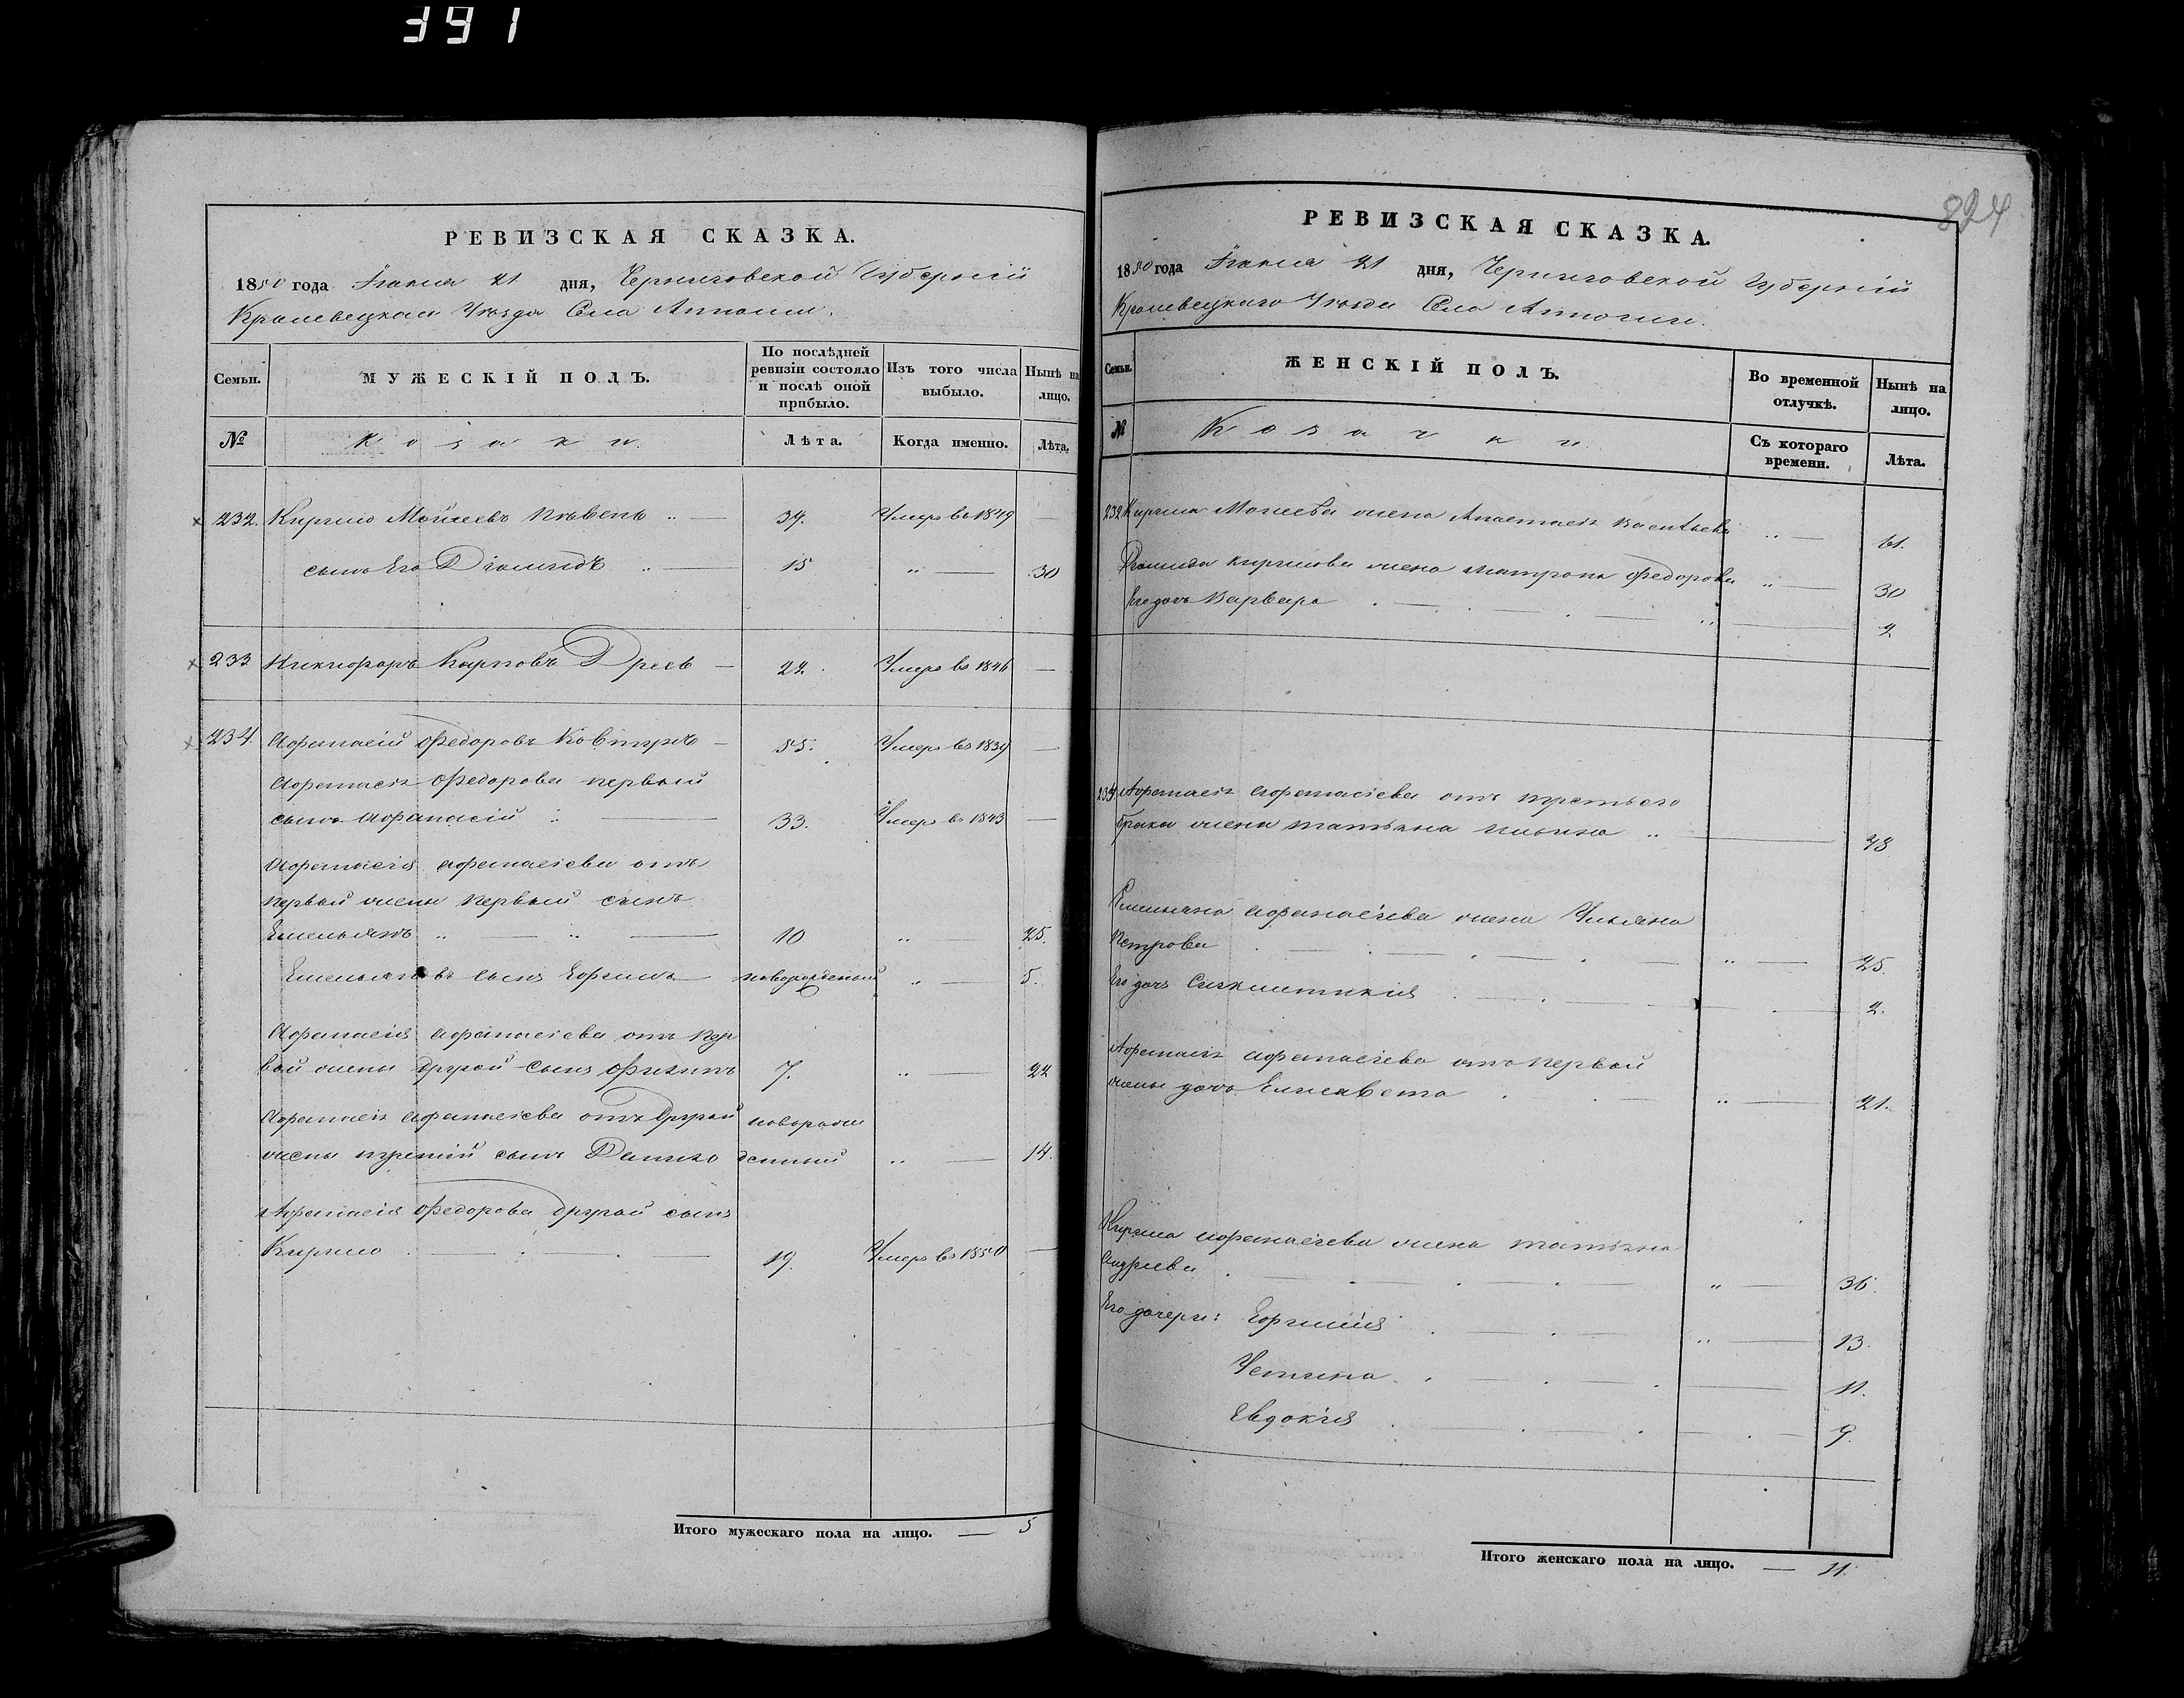 391
РЕВИЗСКАЯ СКАЗКА.
1850 года Iюня 21 дня, Черниговской Губернiи
Кролевецкаго Уезда Села
Семьи.
МУЖЕСКIЙ ПОЛЪ.
По послѣдней ревизiи состояло и послѣ оной прибыло.
Изъ того числа выбыло.
Нынѣ на лицо.
№
Козаки.
Лѣта.
Когда именно.
Лѣта.
232. Кирило Мойсеевъ 34. Умеръ въ 1849 —
сынъ Его Дiомидъ „ — 15 „ — 30
233 Никифоръ Карповъ — 24. Умеръ въ 1846 —
234. Афанасiй Федоровъ Ковтунъ — 55. Умеръ въ 1839 —
Афанасiя Федорова первый
сынъ Афанасiй „ — 33. Умеръ въ 1843 —
Афанасiя Афанасiева отъ
первой жены первый сынъ
Емельянъ „ — „ — 10 „ — 25.
Емельяновъ сынъ Ефимъ — новорожденый „ — 5.
Афанасiя Афанасiева отъ пер
вой жены другой сынъ Филипъ 7. „ — 22
Афанасiя Афанасiева отъ другой новорож
жены третiй сынъ Данило денный „ — 14.
Афанасiя Федорова другой сынъ
Кирило . — . . — 19. Умеръ въ 1850 —
Итого мужескаго пола на лицо. — 5
824
РЕВИЗСКАЯ СКАЗКА.
1850 года Iюня 21 дня, Черниговской Губернiи
Кролевецкаго Уезда Села
Семьи.
ЖЕНСКIЙ ПОЛЪ.
Во временной отлучкѣ.
Нынѣ на лицо.
№
Козачки.
Съ котораго времени.
Лѣта.
232 Кирила Мойсеева жена Анастасiя Васильева „ — 61.
Дiомида Кирилова жена Матрона Федорова „ — 30
Его дочь Варвара . — . — . — „ — 2
234. Афанасiя Афанасiева отъ третьего
брака жена Татьяна Ильина „ — 48
Емельяна Афанасiева жена Ульяна
Петрова . — . — . — . — „ — 25.
Его дочь Синклитикiя . — . — . — 2.
Афанасiя Афанасiева отъ первой
жены дочь Елисавета . . — „ — 21.
Кирила Афанасiева жена Татьяна
Андреева . — . — . — . — „ — 36.
Его дочери: Ефимiя . — . — „ — 13.
Устина . . — . — . — 11.
Евдокiя . . — . — . — 9.
Итого женскаго пола на лицо. — 11.